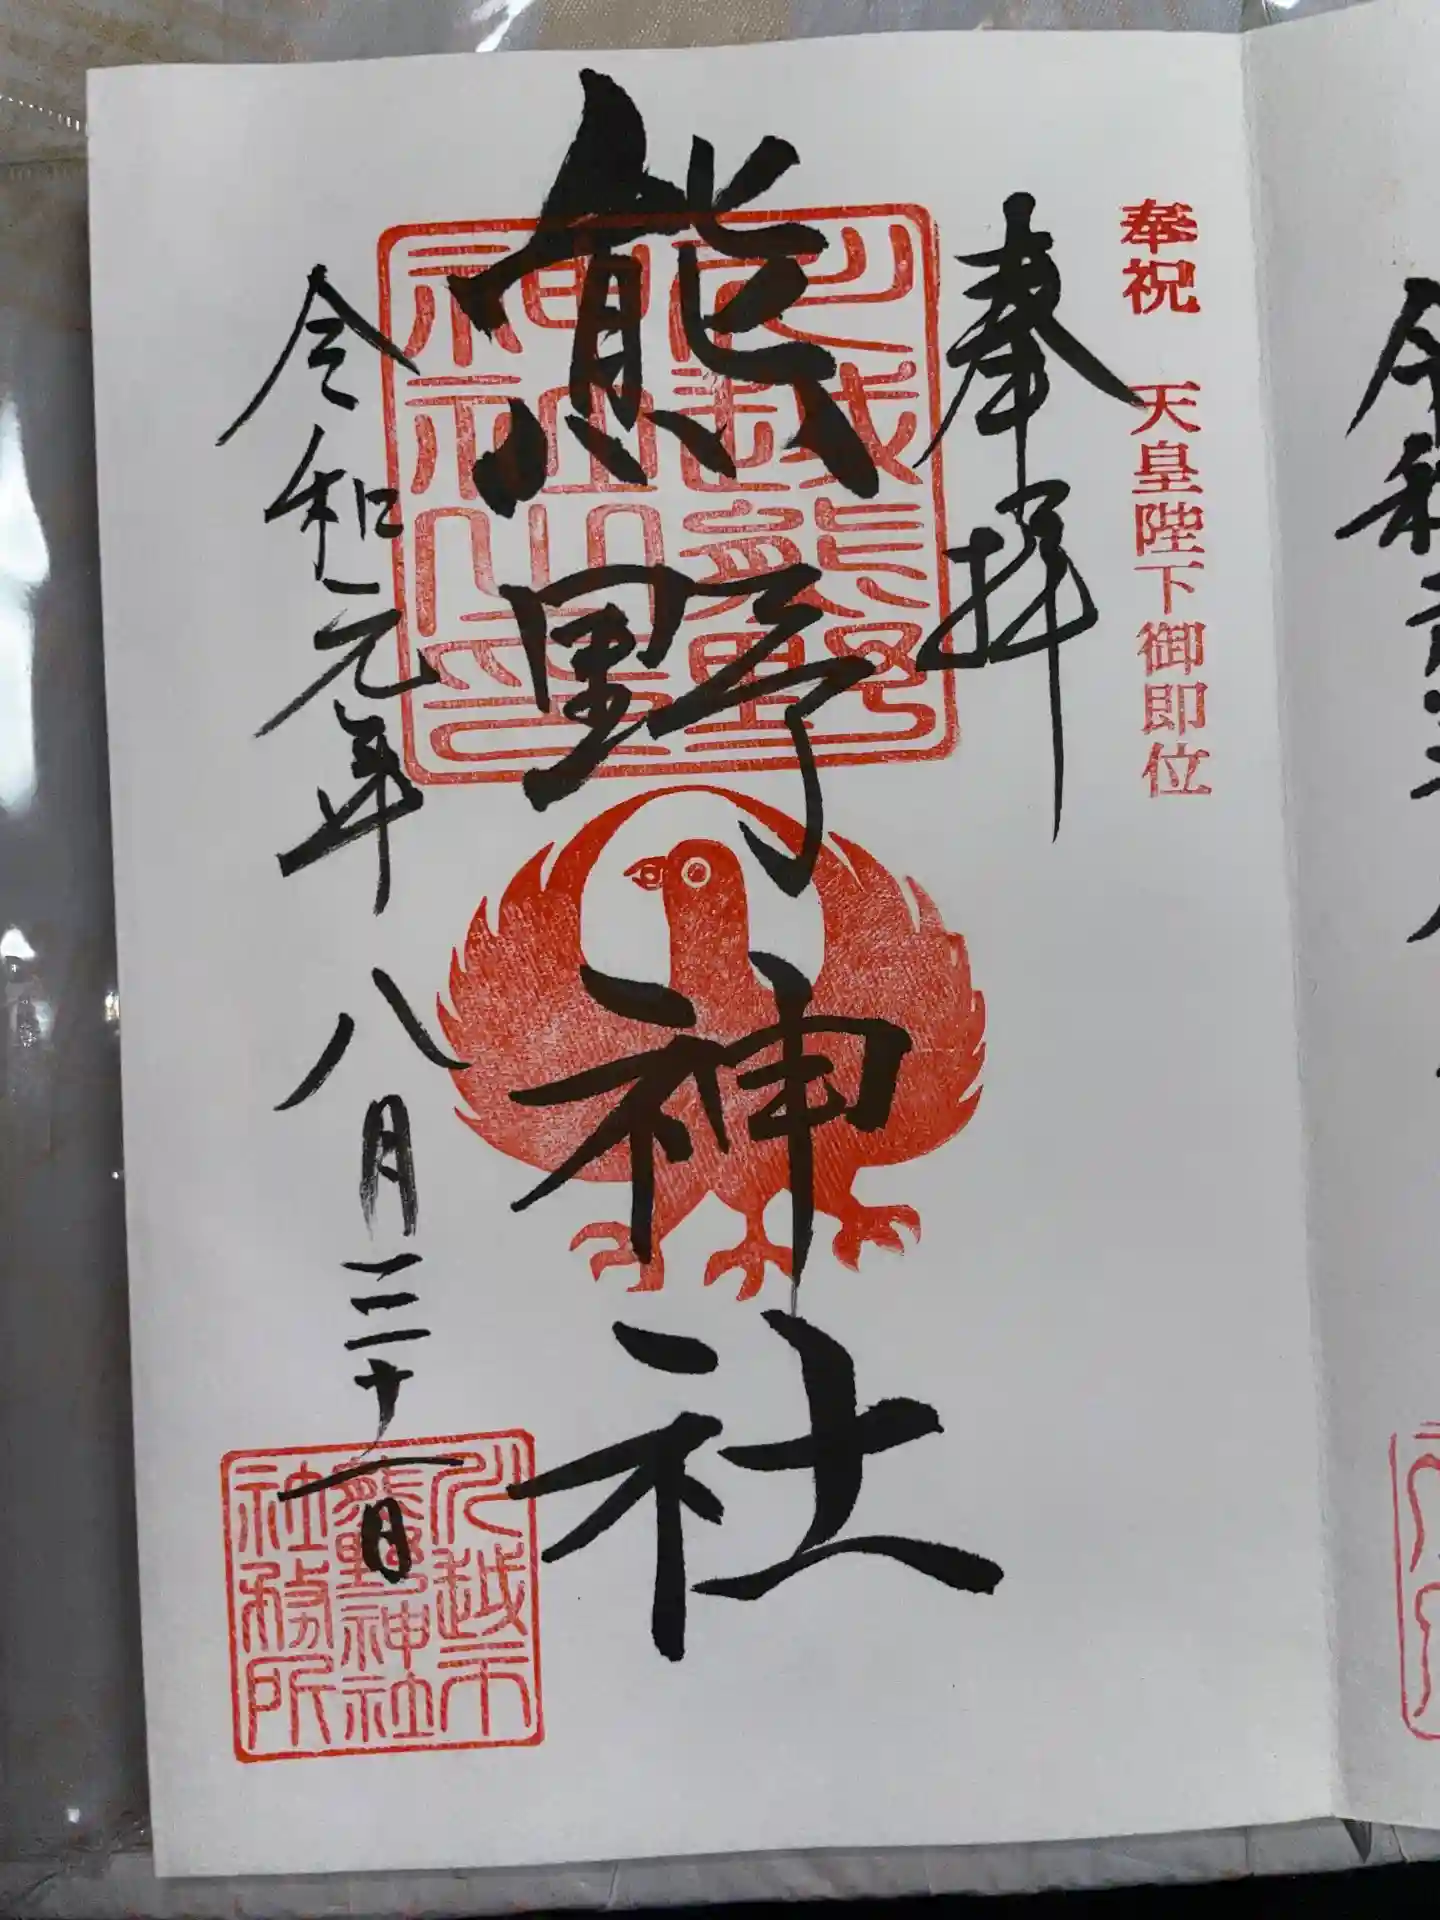 奉祝　天皇陛下御即位
奉拝
熊野神社
川越熊野
神社之印
令和元年八月三十一日
川越市
熊野神社
社務所